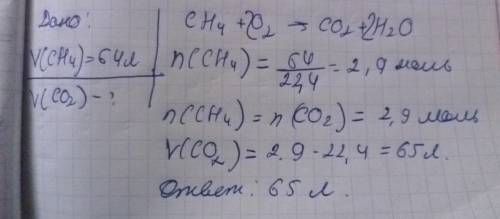 Дано:
V(CH4)=64л
V(CO2)-?
CH4+2O2→CO2+2H2O
n(CH4)=64/22,4=2,9 моль
n(CH4)=n(CO2)=2,9 моль
V(CO2)=2.9·22,4=65л.
Ответ: 65 л.